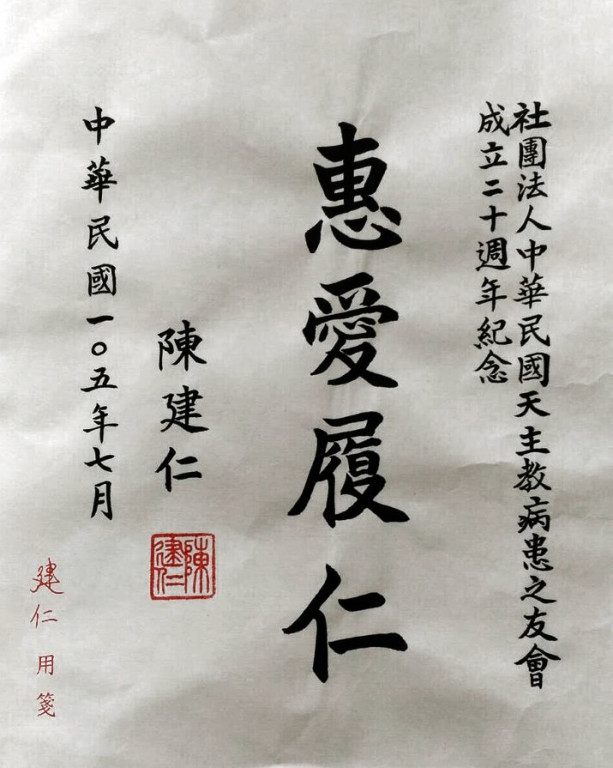 社團法人中華民國天主教病患之友會
成立二十週年紀念
惠愛履仁
陳建仁
陳建仁
中華民國一〇五年七月
建仁用箋